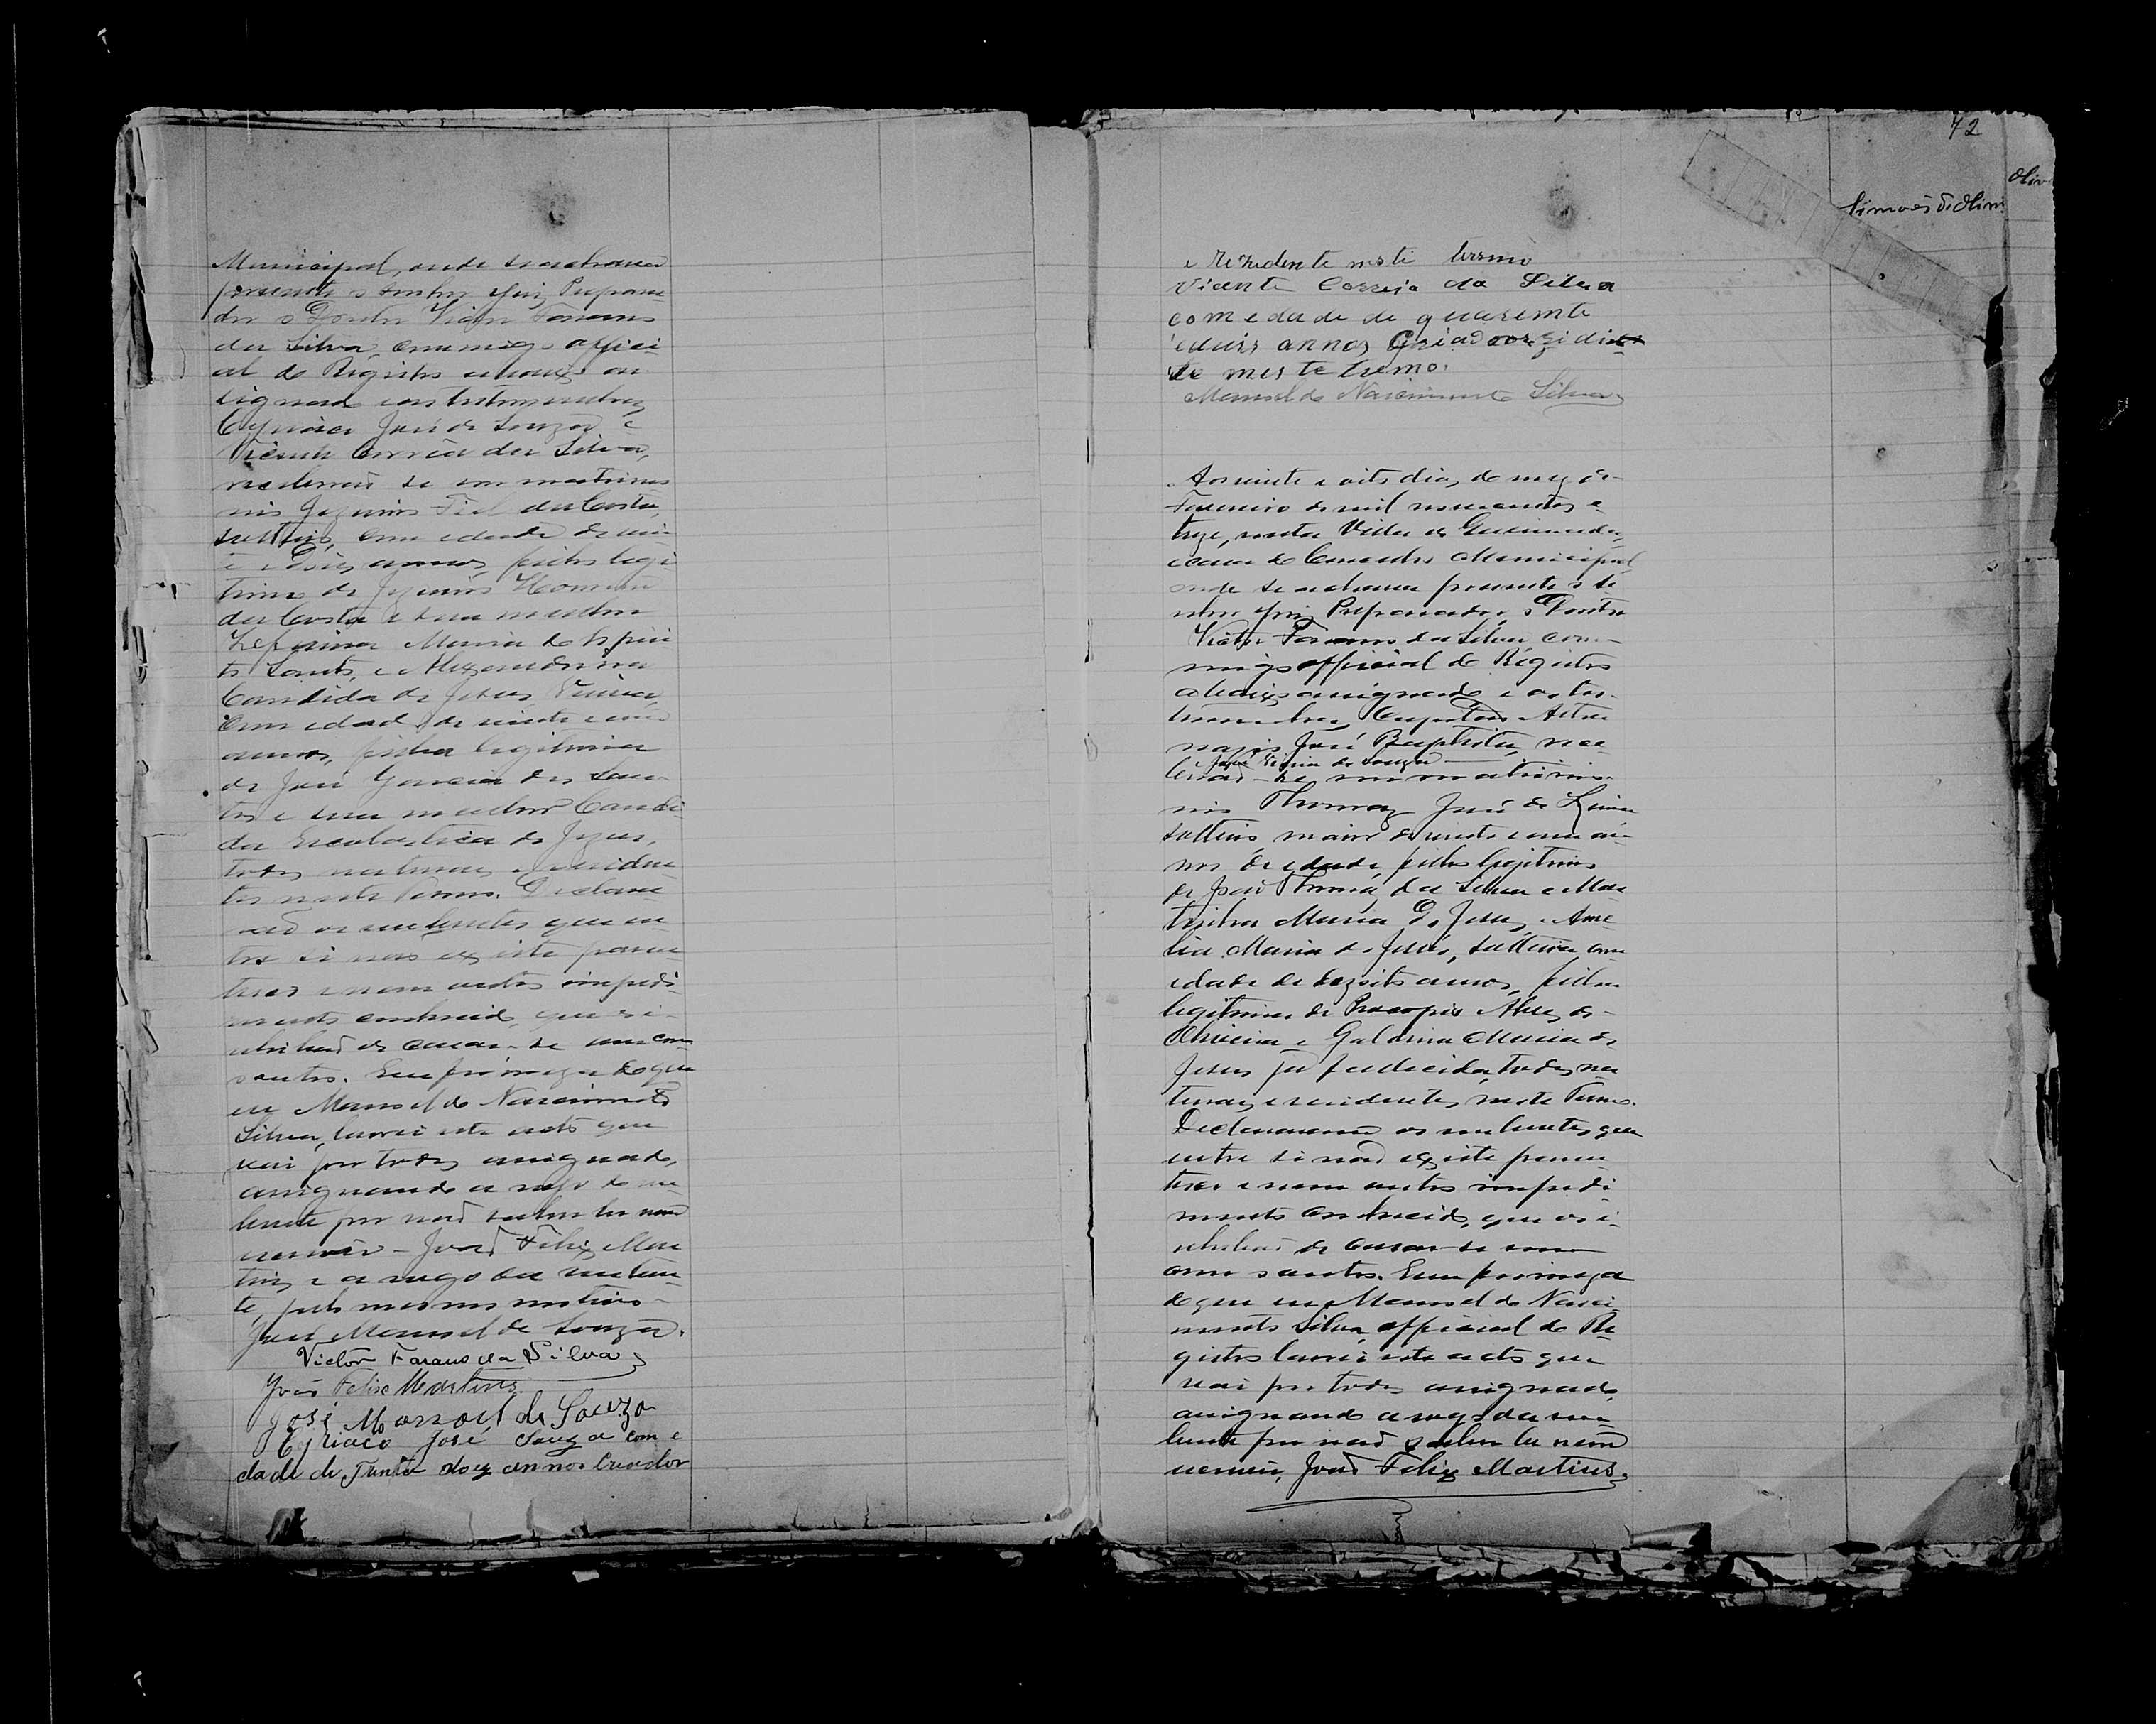 Municipal, onde se achava
presente o Senhor Juiz Prepara-
dor o Doutor Victor Farano
da Silva, commigo offici-
al do Registro abaixo as-
signado e as testemunhas,
Cyriaco José de Souza e
Vicente Corrêa da Silva,
receberão se em matrimo-
nio Jezuino Fiel da Costa
solteiro, com edade de vin-
te e dois annos, filho legi-
timo de Jezuino Homem
da Costa e sua mulher
Zeferina Maria do Espiri-
to Santo, e Alexandrina
Candida de Jesus,
com edade de vinte e um
annos, filha legitima
de José Garcia dos San-
tos e sua mulher Candi-
da Escolastica de Jezus,
todos naturaes e residen-
tes neste Termo. Declara-
rão os nubentes que en-
tre si não existe paren-
tesco e nem outro impedi-
mento conhecido, que os i-
nhibão de casar-se um com
o outro. Em firmeza do que
eu Manoel do Nascimento
Silva, lavrei este acto que
vai por todos assignado,
assignando a rogo do nu-
bente por não saber ler nem
escrever - João Felix Mar-
tins e a rogo da nuben-
te, pelo mesmo motivo -
José Manoel de Souza.
Victor Farano da Silva
João Felix Martins
José Manoel de Souza
Cyriaco José Souza com e
dade de Trinta e dois annos Criador
72
Oliv
Simões de Olivr
e rezidente neste termo
Vicente Correia da Silva
com edade de quarenta
e dois annos Criador rezidin
te neste tremo.
Manoel do Nascimento Silva
Aos vinte e oito dias do mez de
Fevereiro de mil novecentos e
treze, nesta Villa de
e casa do Conselho Municipal
onde se achava presente o Se-
nhor Juiz Preparador, o Doutor
Victor Farano da Silva, com-
migo official do Registro
abaixo assignado e as tes-
temunhas, Capitão
José Baptista, rece-
e José Vieira de Souza
berão-se em matrimo-
nio Thomaz José de Lima
solteiro, maior de vinte e um an-
nos de edade, filho legitimo
de José Thomaz da Silva e Ma-
thildes Maria de Jesus, e Ame-
lia Maria de Jesus, solteira, com
edade de dezoito annos, filha
legitima de Procopio Alves de
Oliveira e Galdina Maria de
Jesus já fallecida, todos na-
turaes e residentes neste Termo.
Declararão os nubentes que
entre si não existe paren-
tesco e nem outro impedi-
mento conhecido, que os i-
nhibão de casar-se um
com o outro. Em firmeza
do que eu Manoel do Nasci-
mento Silva, official do Re-
gistro lavrei este acto que
vai por todos assignado,
assignando a rogo da nu-
bente por não saber ler nem
escrever, João Felix Martins.